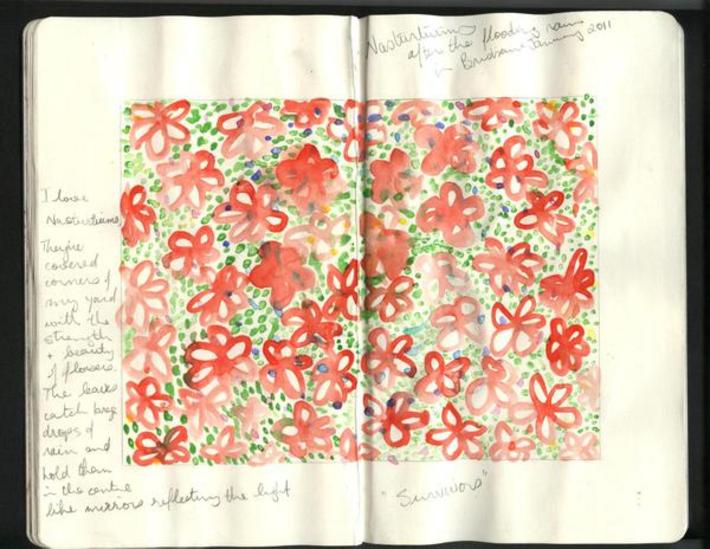 Nasturtiums
after the flooding rains
in Brisbane January 2011
I love
Nasturtiums,
They've
covered
corners of
my yard
with the
strength
+ beauty
of flowers.
The leaves
catch large
drops of
rain and
hold them
in the centre
like mirrors reflecting the light
"Survivors"